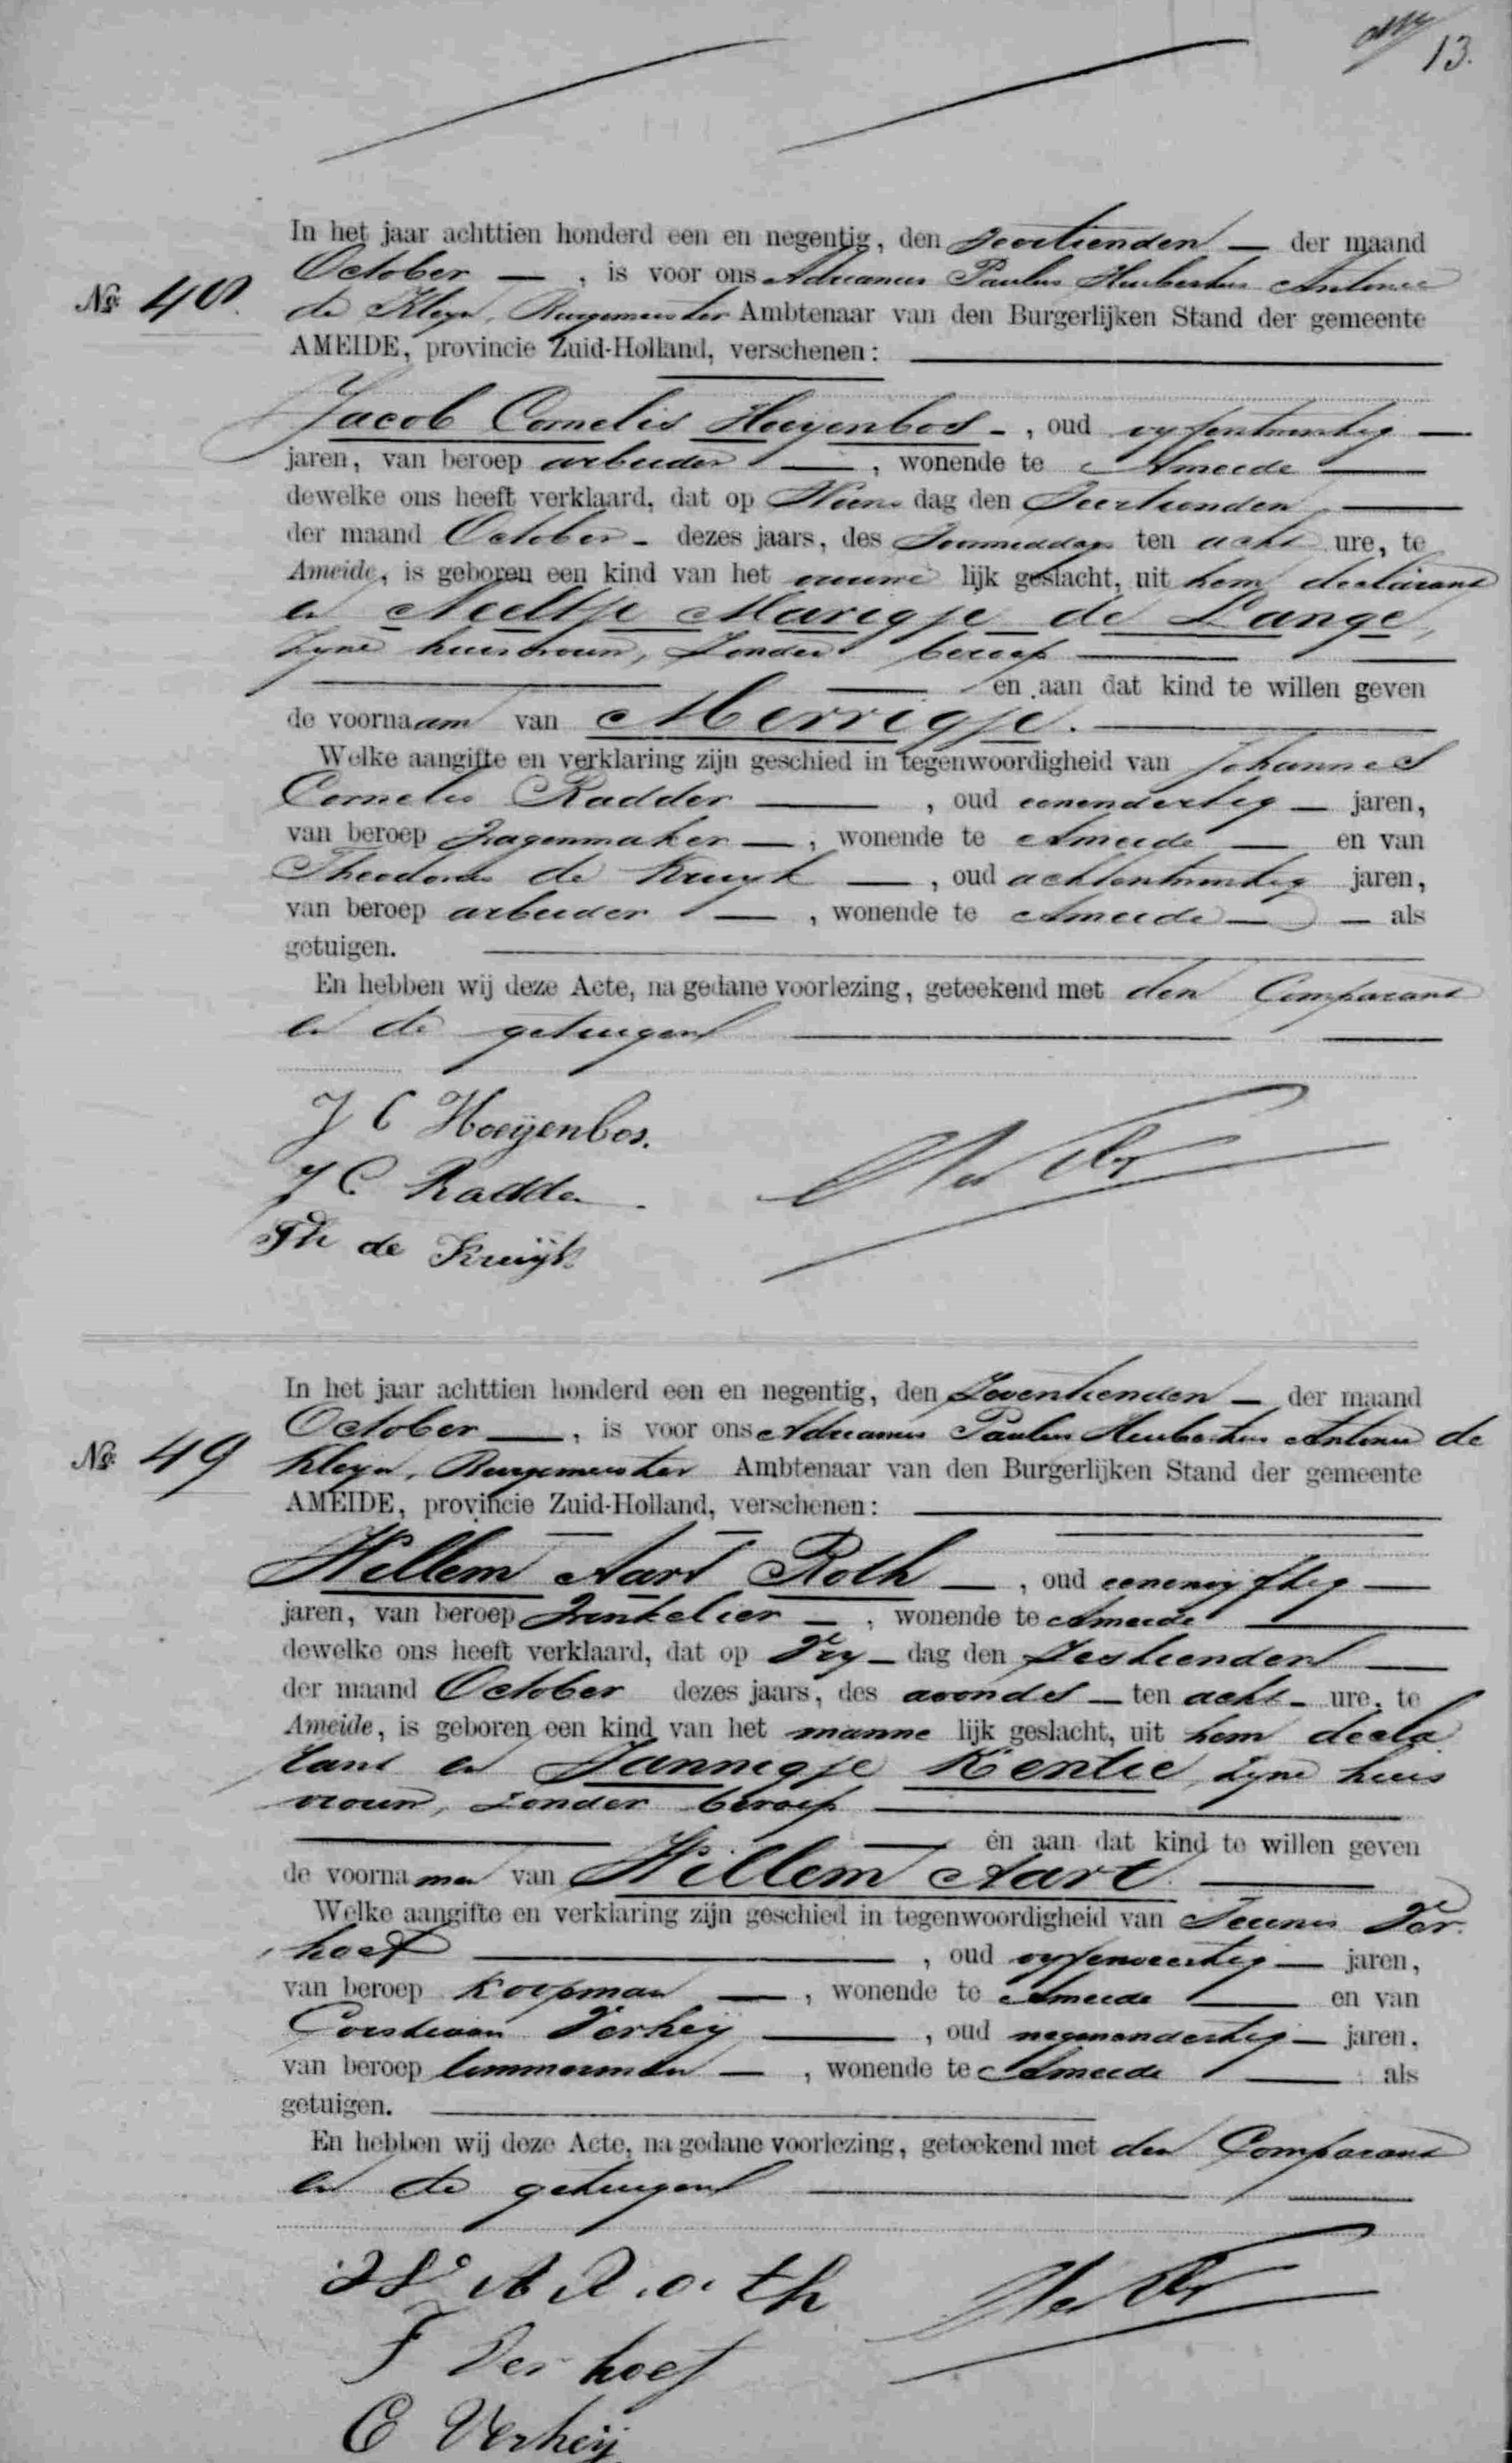 13.
In het jaar achttien honderd een en negentig, den veertienden — der maand
October — , is voor ons Adrianus Paulus Huibertus Antonie
No. 48.
de Kleyn, Burgemeester Ambtenaar van den Burgerlijken Stand der gemeente
AMEIDE, provincie Zuid-Holland, verschenen:
Jacob Cornelis Hoeyenbos - , oud vyfentwintig —
jaren, van beroep arbeider — , wonende te Ameide —
dewelke ons heeft verklaard, dat op Woens dag den Veertienden —
der maand October - dezes jaars, des Voormiddags ten acht ure, te
Ameide, is geboren een kind van het vrouwe lijk geslacht, uit hem declarant
en Neeltje Marigje de Lange,
zyne huisvrouw, zonder beroep —
— en aan dat kind te willen geven
de voornaam van Merrigje. —
Welke aangifte en verklaring zijn geschied in tegenwoordigheid van Johannes
Cornelis Radder — , oud eenendertig — jaren,
van beroep Wagenmaker — , wonende te Ameide — en van
Theodorus de Kruyk — , oud achtentwintig jaren,
van beroep arbeider — , wonende te Ameide — als
getuigen.
En hebben wij deze Acte, na gedane voorlezing, geteekend met den Comparant
en de getuigen —
J C Hoeÿenbos.
J C Radder
Th de Kruÿk
In het jaar achttien honderd een en negentig, den Zeventienden — der maand
October — , is voor ons Adrianus Paulus Huibertus Antonie de
No. 49
Kleyn, Burgemeester Ambtenaar van den Burgerlijken Stand der gemeente
AMEIDE, provincie Zuid-Holland, verschenen:
Willem Aart Roth — , oud eenenvyftig —
jaren, van beroep Winkelier — , wonende te Ameide —
dewelke ons heeft verklaard, dat op Vry — dag den Zestienden —
der maand October dezes jaars, des avonds — ten acht - ure, te
Ameide, is geboren een kind van het manne lijk geslacht, uit hem decla
rant en Jannigje Kentie, zyne huis
vrouw, zonder beroep —
— en aan dat kind te willen geven
de voornamen van Willem Aart. —
Welke aangifte en verklaring zijn geschied in tegenwoordigheid van Teunis Ver
hoef — , oud vyfenveertig — jaren,
van beroep Koopman — , wonende te Ameide — en van
Corstiaan Verheÿ — , oud negenendertig — jaren,
van beroep timmerman — , wonende te Ameide — als
getuigen. —
En hebben wij deze Acte, na gedane voorlezing, geteekend met den Comparant
en de getuigen —
W A Roth
T Verhoef
C Verheÿ